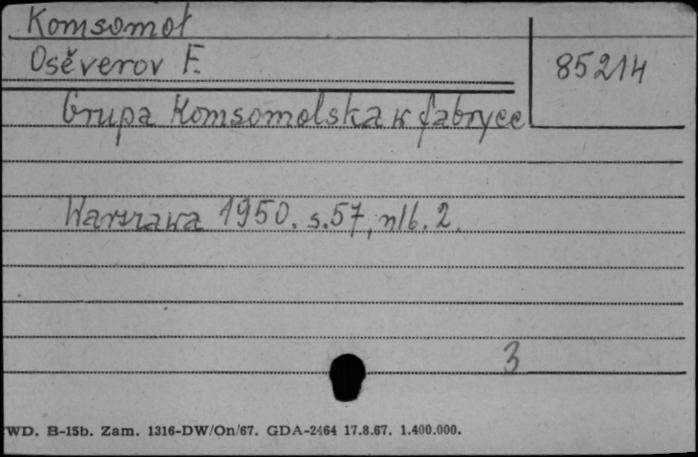 Komsomoł
Osěverov F.
85214
Grupa Komsomolska w fabryce
Warszawa 1950. s.57, nlb. 2.
3
WD. B-15b. Zam. 1316-DW/On/67. GDA-2464 17.8.67. 1.400.000.